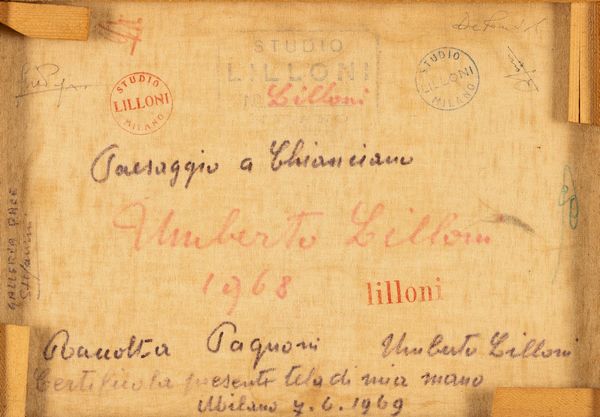 STUDIO
LILLONI
Lilloni
STUDIO
LILLONI
MILANO
STUDIO
LILLONI
MILANO
Paesaggio a Chianciano
Umberto Lilloni
1968
lilloni
GALLERIA PACE
Raccolta Pagnoni
Umberto Lilloni
Certifico la presente tela di mia mano
Milano 7.6.1969